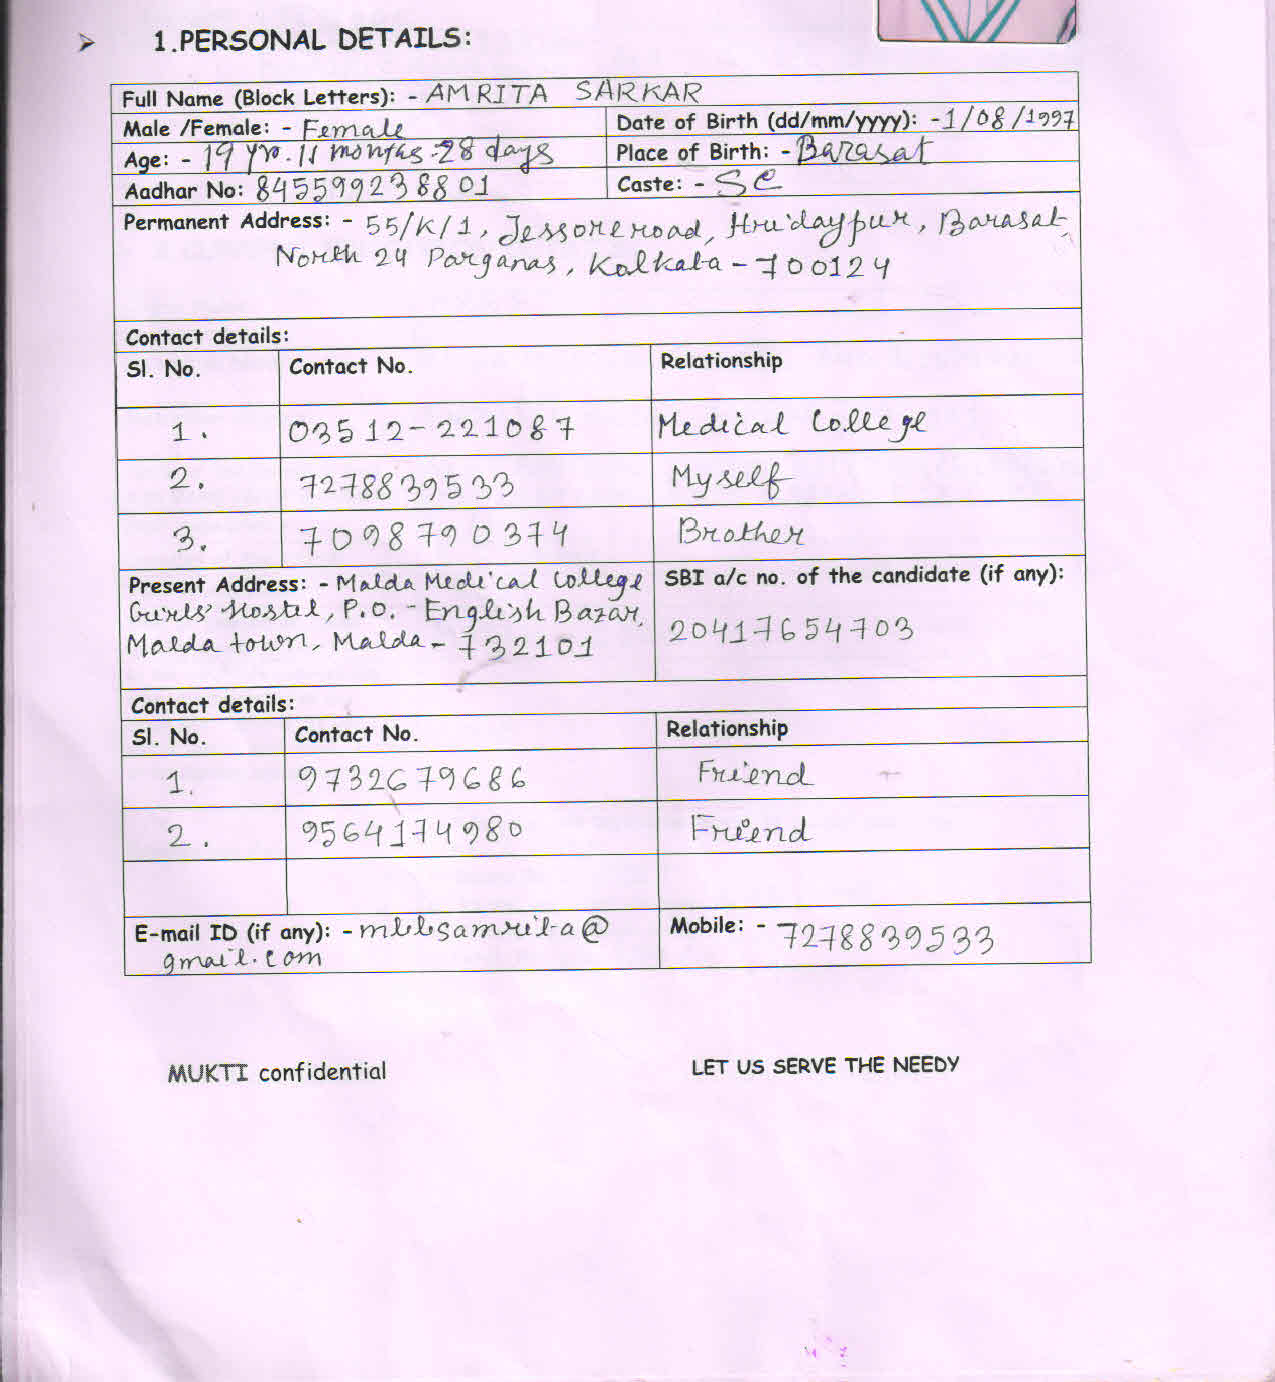 ➢ 1.PERSONAL DETAILS:
Full Name (Block Letters): - AMRITA SARKAR
Male /Female: - Female Date of Birth (dd/mm/yyyy): -1/08/1997
Age: - 19 yr. 11 months 28 days Place of Birth: - Barasat
Aadhar No: 845599238801 Caste: - SC
Permanent Address: - 55/K/1, Jessore road, Hridaypur, Barasat,
North 24 Parganas, Kolkata - 700124
Contact details:
Sl. No. Contact No. Relationship
1. 03512-221087 Medical College
2. 7278839533 Myself
3. 7098790374 Brother
Present Address: - Malda Medical College SBI a/c no. of the candidate (if any):
Girls' Hostel, P.O. - English Bazar,
Malda town, Malda - 732101 20417654703
Contact details:
Sl. No. Contact No. Relationship
1. 9732679686 Friend
2. 9564174980 Friend
E-mail ID (if any): - mbbsamrita@ Mobile: - 7278839533
gmail.com
MUKTI confidential LET US SERVE THE NEEDY